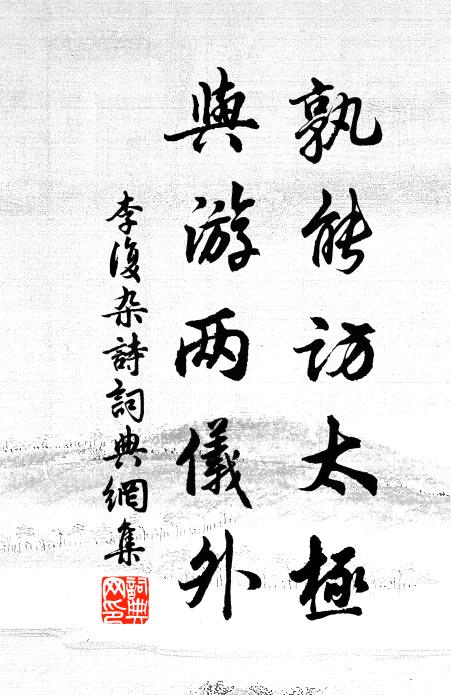 孰能訪太極
與游两儀外
李復杂詩詞典網集
詞典
网印